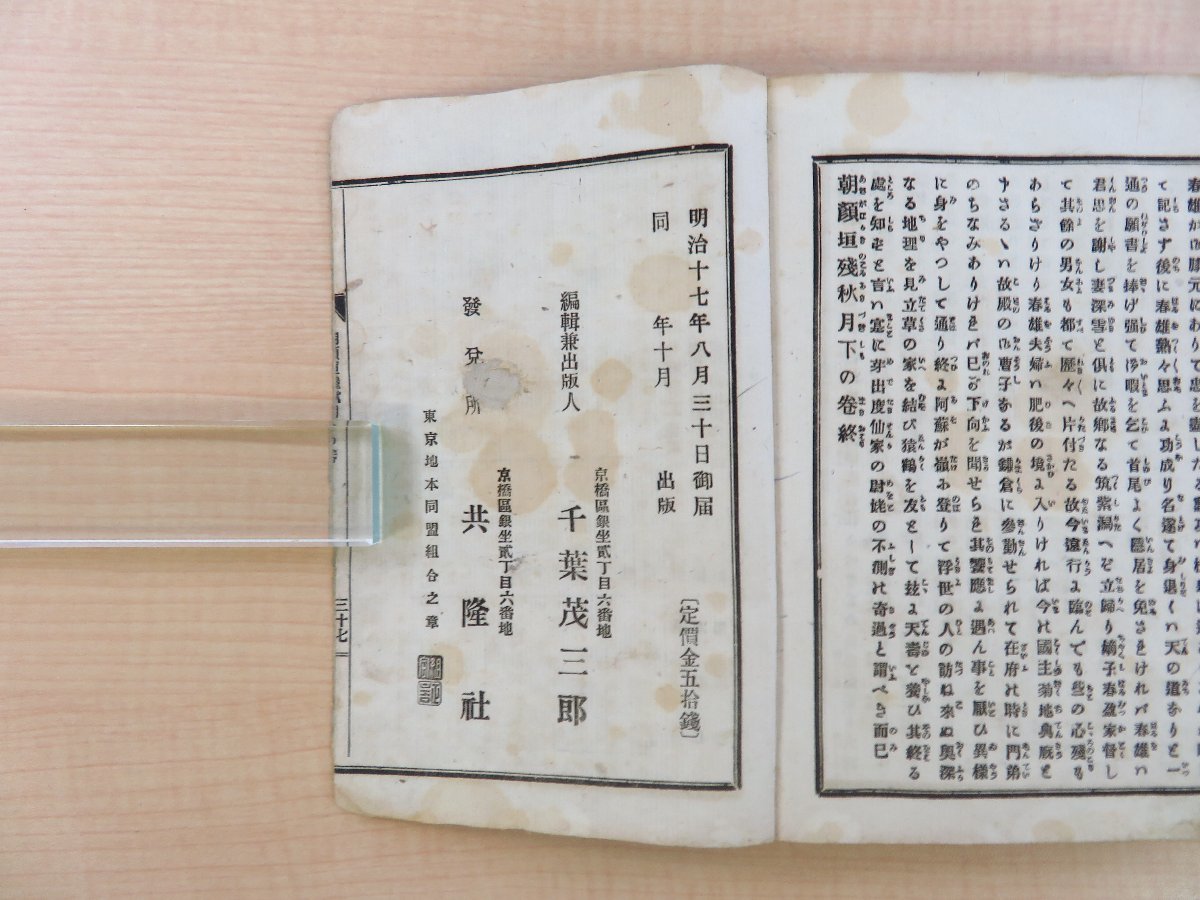 春雄が
て記さず後に春雄熟々思ふよ功成り名遂て身退くハ天の道ありと一
通の願書を捧げ強て御暇を乞て首尾よく隠居を免されけれバ春雄ハ
君恩を謝し妻深雪と倶に故郷なる筑紫潟へを立帰り嫡子春盈家督し
て其餘の男女も都て歴々へ片付たる故今遠行よ臨んでも些の心殘も
あらざりけり春雄夫婦ハ肥後の境よ入りければ今の國主菊地典厩と
申さるゝハ故殿の曹子あるが鎌倉に参勤せられて在府の時に門弟
のちなみありけれバ巳が下向を聞せらを其饗應よ遇ん事を厭ひ異樣
に身をやつして通り終よ阿蘇が嶺お登りて浮世の人の訪ね來ぬ奥深
なる地理を見立草の家を結び猿鶴を友として玆よ天壽を養ひ其終る
處を知をと言ハ寔に芽出度仙家の尉姥の不測の奇過と謂べき而已
朝顔垣殘秋月下の卷終
明治十七年八月三十日御届
同　年十月　出版
〔定價金五拾錢〕
京橋區銀坐貳丁目六番地
編輯兼出版人　千葉茂三郎
京橋區銀坐貳丁目六番地
發兌所　共隆社
東京地本同盟組合之章
三十七